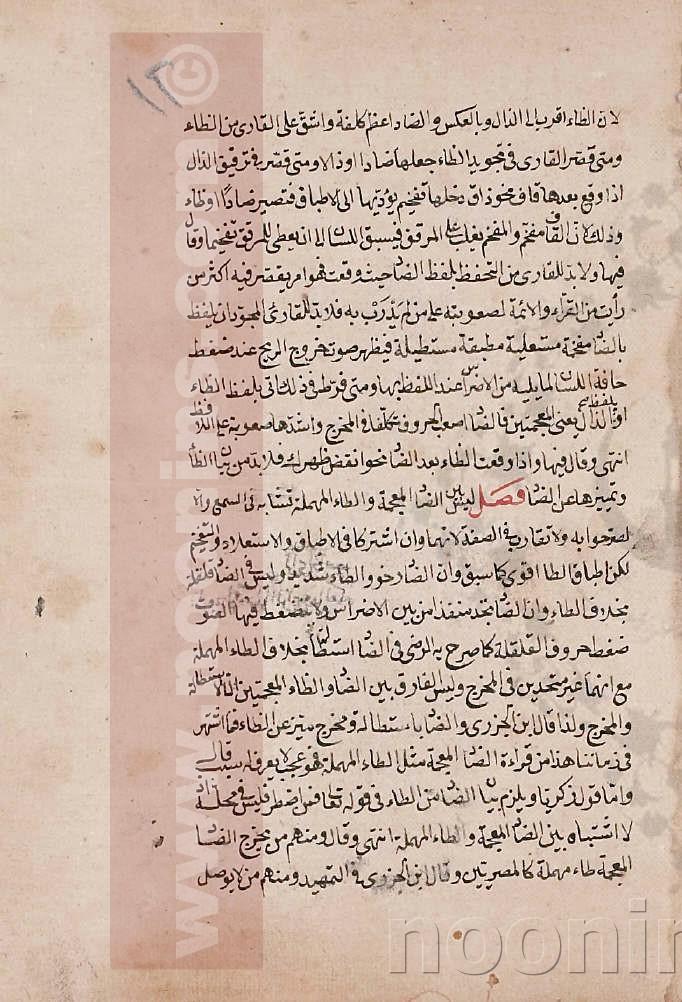 ١٢
لان الظاء اقرب الى الذال وبالعكس والضاد اعظم كلفة واشق على القارى من الظاء
ومتى قصر القارى فى تجويد الظاء جعلها ضادا او ذالا ومتى قصر فى ترقيق الذال
اذا وقع بعدها قاف نحو ذاق دخلها تفخيم يؤديها الى الاطباق فتصير ضادا او ظاء
وذلك لان القاف مفخم والمفخم يغلب على المرقق فيسبق اللسان الى ان يعطى للمرقق تفخيما وقال
فيها ولا بد للقارى من التحفظ بلفظ الضاد حيث وقعت فهو امر يقصر فيه اكثر من
رأيت من القراء والائمة لصعوبته على من لم يَدْرَبْ به فلا بد للقارئ المجود ان يلفظ
بالضاد مفخمة مستعلية مطبقة مستطيلة فيظهر صوت خروج الريح عند ضغط
حافة اللسان لما يليه من الاضراس عند اللفظ بها ومتى فرط فى ذلك اتى بلفظ الظاء
او بلفظ الذال يعنى المعجمتين فالضاد اصعب الحروف تكلفا فى المخرج واشدها صعوبة على اللافظ
انتهى وقال فيها واذا وقعت الظاء بعد الضاد نحو انقض ظهرك فلا بد من بيان الظاء
وتمييزها عن الضاد فصل ليس بين الضاد المعجمة والطاء المهملة تشابه فى السمع والا
لصرحوا به ولا تقارب فى الصفة لانهما وان اشتركا فى الاطباق والاستعلاء والتفخيم
لكن اطباق الطاء اقوى كما سبق وان الضاد رخو والطاء شديد وليس فى الضاد قلقلة
بخلاف الطاء وان الضاد تجد منفذا من بين الاضراس ولا ينضغط فيها الصوت
ضغط حروف القلقلة كما صرح به الرضى فى الضاد استطالة بخلاف الطاء المهملة
مع انهما غير متحدين فى المخرج وليس الفارق بين الضاد والظاء المعجمتين الا الاستطالة
والمخرج ولذا قال ابن الجزرى والضاد باستطالة ومخرج ميز عن الظاء فما اشتهر
فى زماننا هذا من قراءة الضاد المعجمة مثل الطاء المهملة فهو عجب لا يعرف له سبب قال
واما قول زكريا ويلزم بيان الضاد من الطاء فى قوله تعالى فمن اضطر فليس فى محله اذ
لا اشتباه بين الضاد المعجمة والطاء المهملة انتهى وقال ومنهم من يخرج الضاد
المعجمة طاء مهملة كالمصريين وقال ابن الجزرى فى التمهيد ومنهم من لا يوصل
www.noonin.com ©
noonin